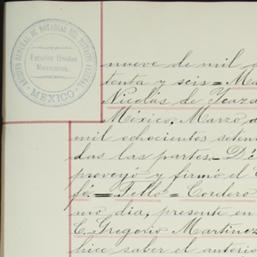 ARCHIVO GENERAL DE NOTARIAS DEL DISTRITO FEDERAL
Estados Unidos
Mexicanos.
MEXICO
nueve de mil
tenta y seis = Ma
Nicolás de Ycaza
México, Marzo
mil ochocientos seten
das las partes.=
proveyó y firmó el
fé.= Tello = Cordero
mo dia, presente en
C. Gregorio Martinez
hice saber el anterior